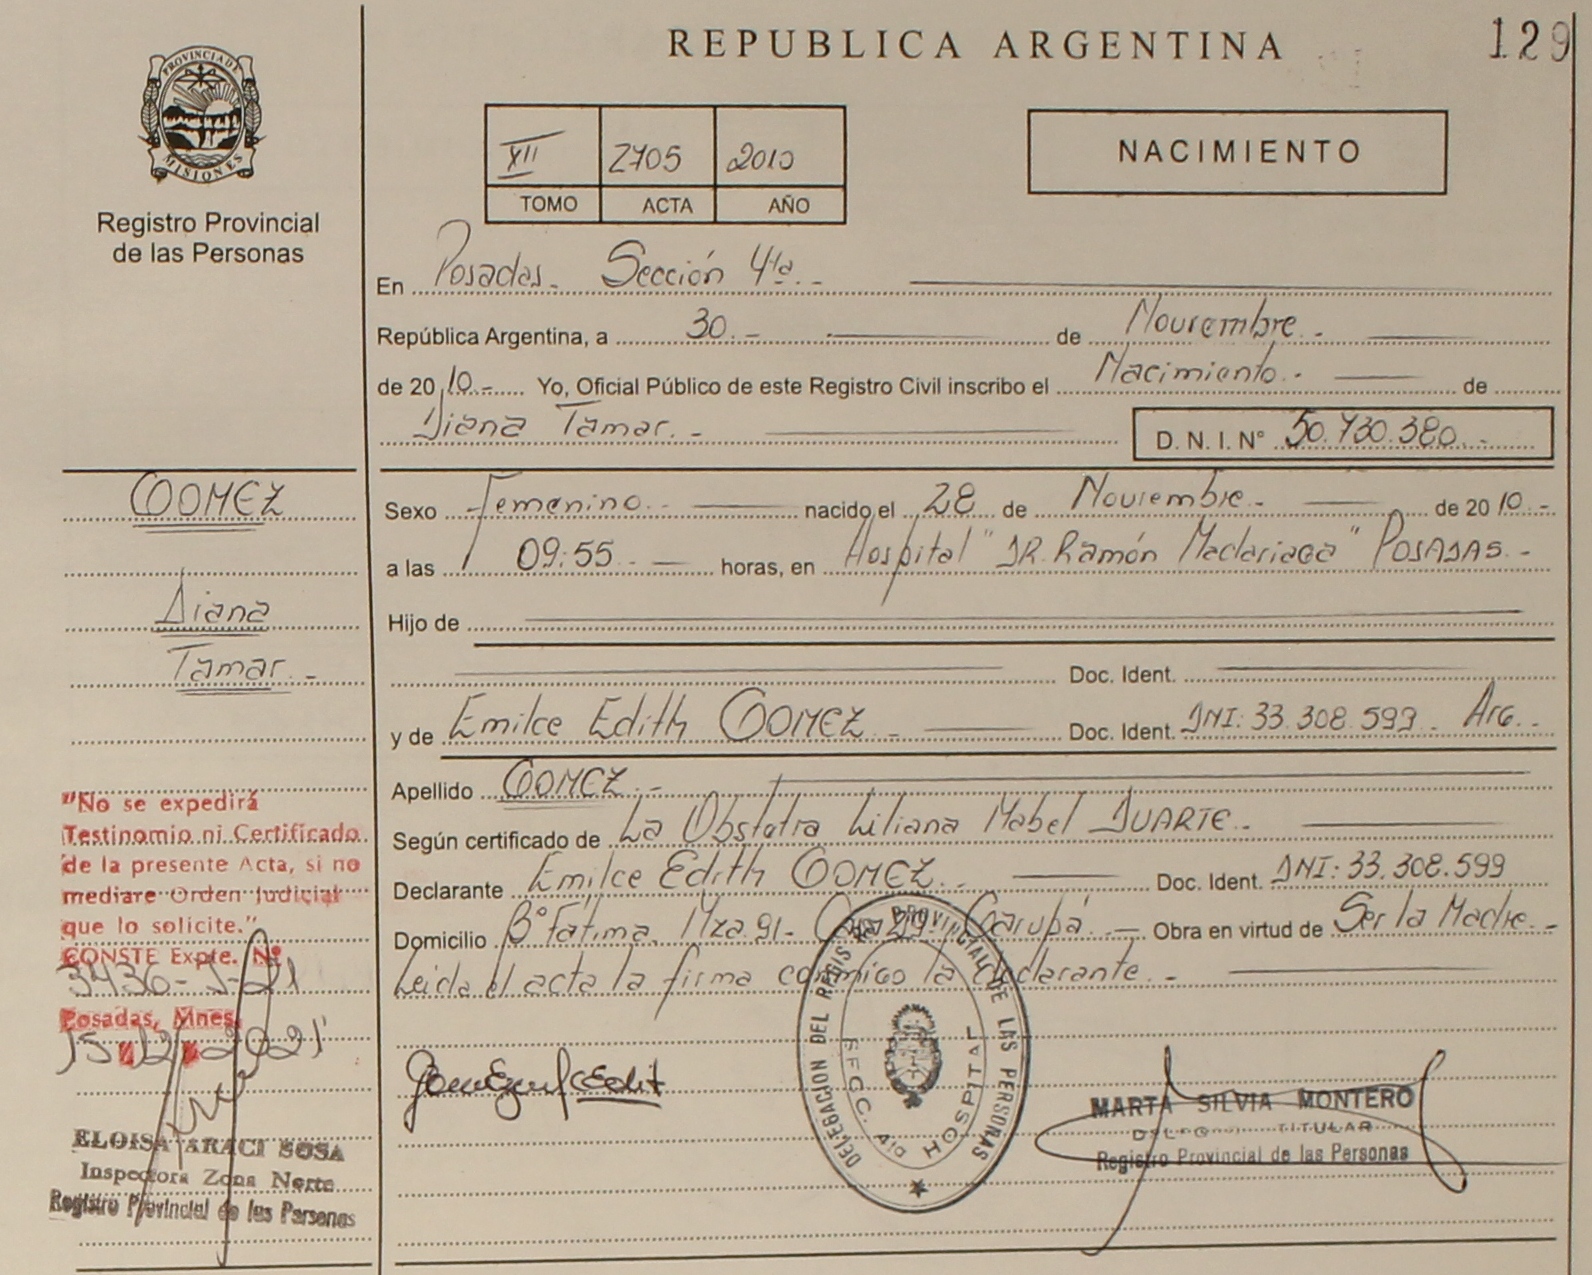 REPUBLICA ARGENTINA
129
PROVINCIA DE MISIONES
Registro Provincial
de las Personas
XII 2705 2010
TOMO ACTA AÑO
NACIMIENTO
En Posadas.- Sección 4ta.-
República Argentina, a 30.- de Noviembre.-
de 2010.- Yo, Oficial Público de este Registro Civil inscribo el Nacimiento.- de
Diana Tamar.- D. N. I. N° 50.730.380.-
GOMEZ
Diana
Tamar.-
Sexo Femenino.- nacido el 28 de Noviembre.- de 2010.-
a las 09:55.- horas, en Hospital "DR. Ramón Madariaga" POSADAS.-
Hijo de
Doc. Ident.
y de Emilce Edith GOMEZ.- Doc. Ident. DNI: 33.308.599. ARG.-
Apellido GOMEZ.-
Según certificado de La Obstetra Liliana Mabel DUARTE.-
Declarante Emilce Edith GOMEZ.- Doc. Ident. DNI: 33.308.599
Domicilio B° Fátima. Mza. 91- Garupá.- Obra en virtud de Ser la Madre.-
Leida el acta la firma conmigo la declarante.-
"No se expedirá
Testinomio ni Certificado
de la presente Acta, si no
mediare Orden Judicial
que lo solicite."
CONSTE Expte. N°
3436-J-21
Posadas, Mnes.
15 12 2021
ELOISA ARACI SOSA
Inspectora Zona Norte
Registro Provincial de las Personas
DELEGACION DEL REGISTRO PROVINCIAL DE LAS PERSONAS
SECC. 4ta HOSPITAL
MARTA SILVIA MONTERO
TITULAR
Registro Provincial de las Personas